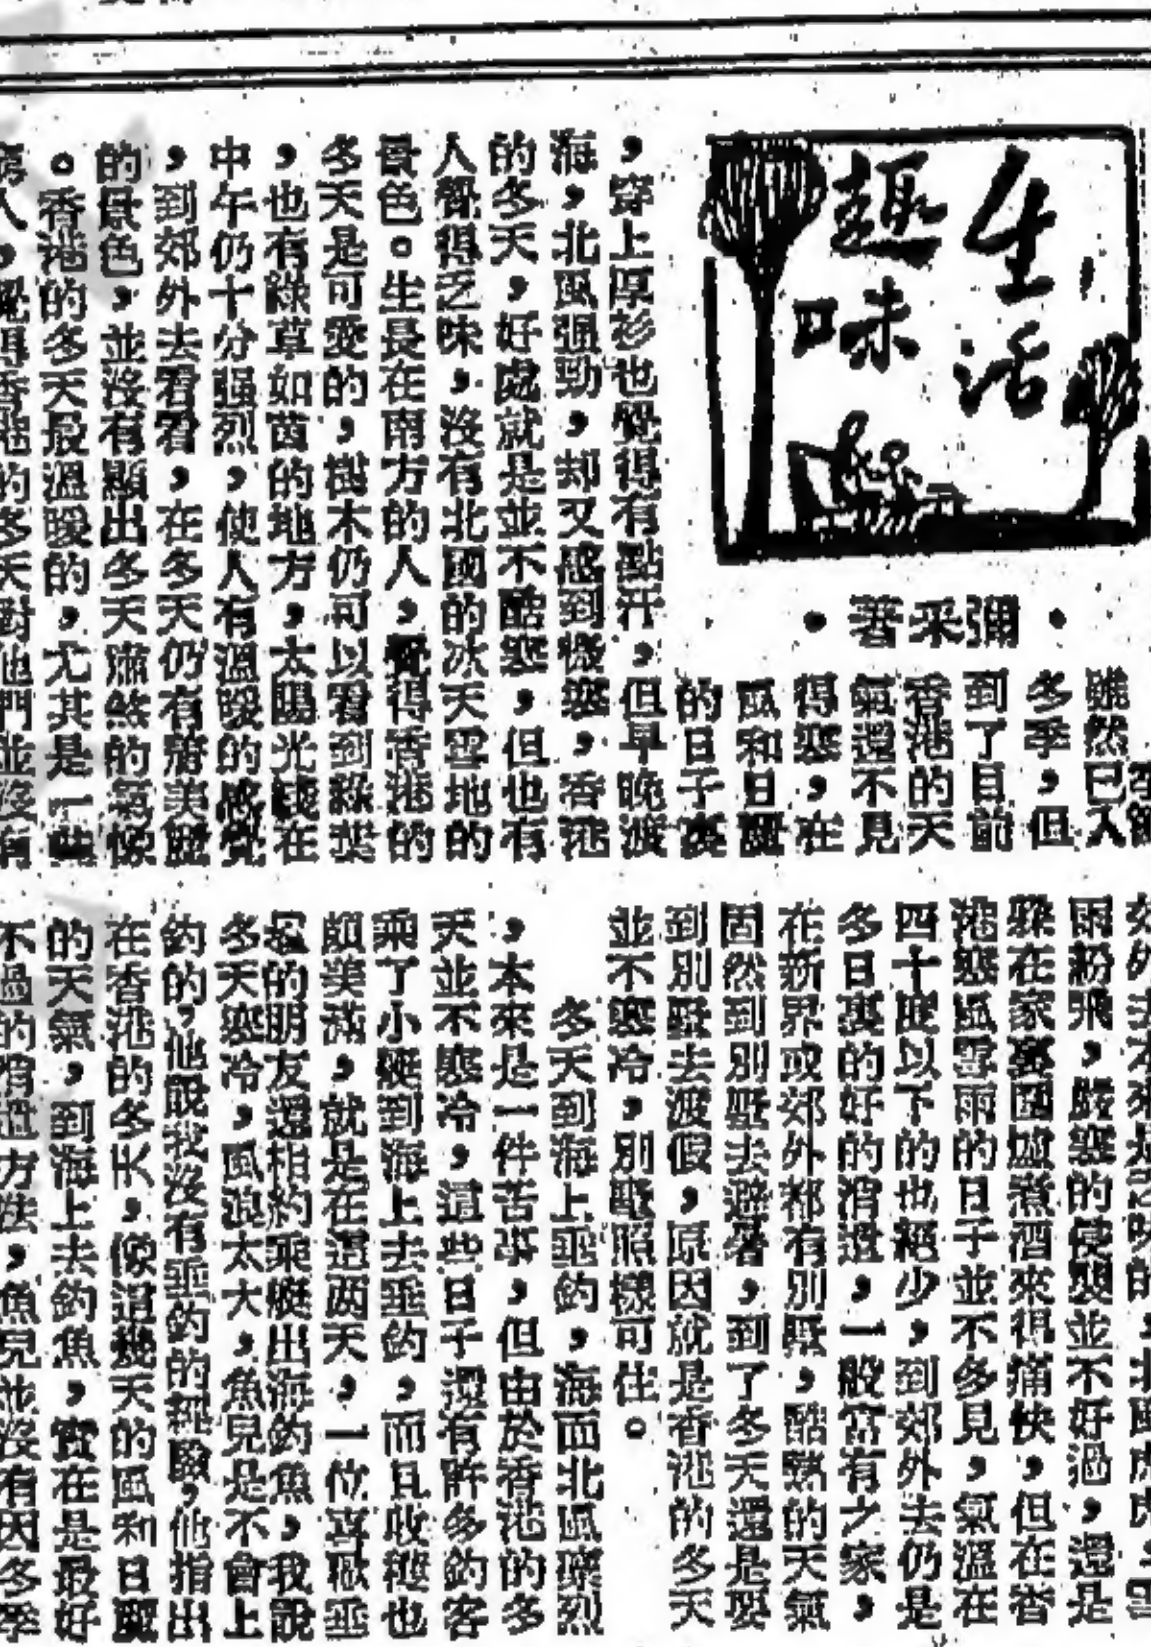 生活
趣味
・彌采著・
雖然已入
冬季，但
到了目前
香港的天
氣還不見
得寒，在
風和日麗
的日子裏
，穿上厚衫也覺得有點汗，但早晚渡
海，北風强勁，却又感到微寒，香港
的冬天，好處就是並不酷寒，但也有
人覺得乏味，沒有北國的冰天雪地的
景色。生長在南方的人，覺得香港的
冬天是可愛的，樹木仍可以看到綠葉
，也有綠草如茵的地方，太陽光綫在
中午仍十分强烈，使人有溫暖的感覺
，到郊外去看看，在冬天仍有着美麗
的景色，並沒有顯出冬天肅煞的氣候
。香港的冬天最溫暖的，尤其是一些
人，覺得香港的冬天對他們並沒有
郊外去本來是乏味的，北風虎虎，雪
雨紛飛，嚴寒的侵襲並不好過，還是
躱在家裏圍爐煮酒來得痛快，但在香
港寒風雪雨的日子並不多見，氣溫在
四十度以下的也絕少，到郊外去仍是
冬日裏的好的消遣，一般富有之家，
在新界或郊外都有別墅，酷熱的天氣
固然到別墅去避暑，到了冬天還是要
到別墅去渡假，原因就是香港的冬天
並不寒冷，別墅照樣可住。
冬天到海上垂釣，海面北風凜烈
，本來是一件苦事，但由於香港的冬
天並不寒冷，這些日子還有許多釣客
乘了小艇到海上去垂釣，而且收穫也
頗美滿，就是在這两天，一位喜歡垂
釣的朋友還相約乘艇出海釣魚，我說
冬天寒冷，風浪太大，魚兒是不會上
鈎的，他說我沒有垂釣的經驗，他指出
在香港的冬天，像這幾天的風和日麗
的天氣，到海上去釣魚，實在是最好
不過的消遣方法，魚兒並沒有因冬季